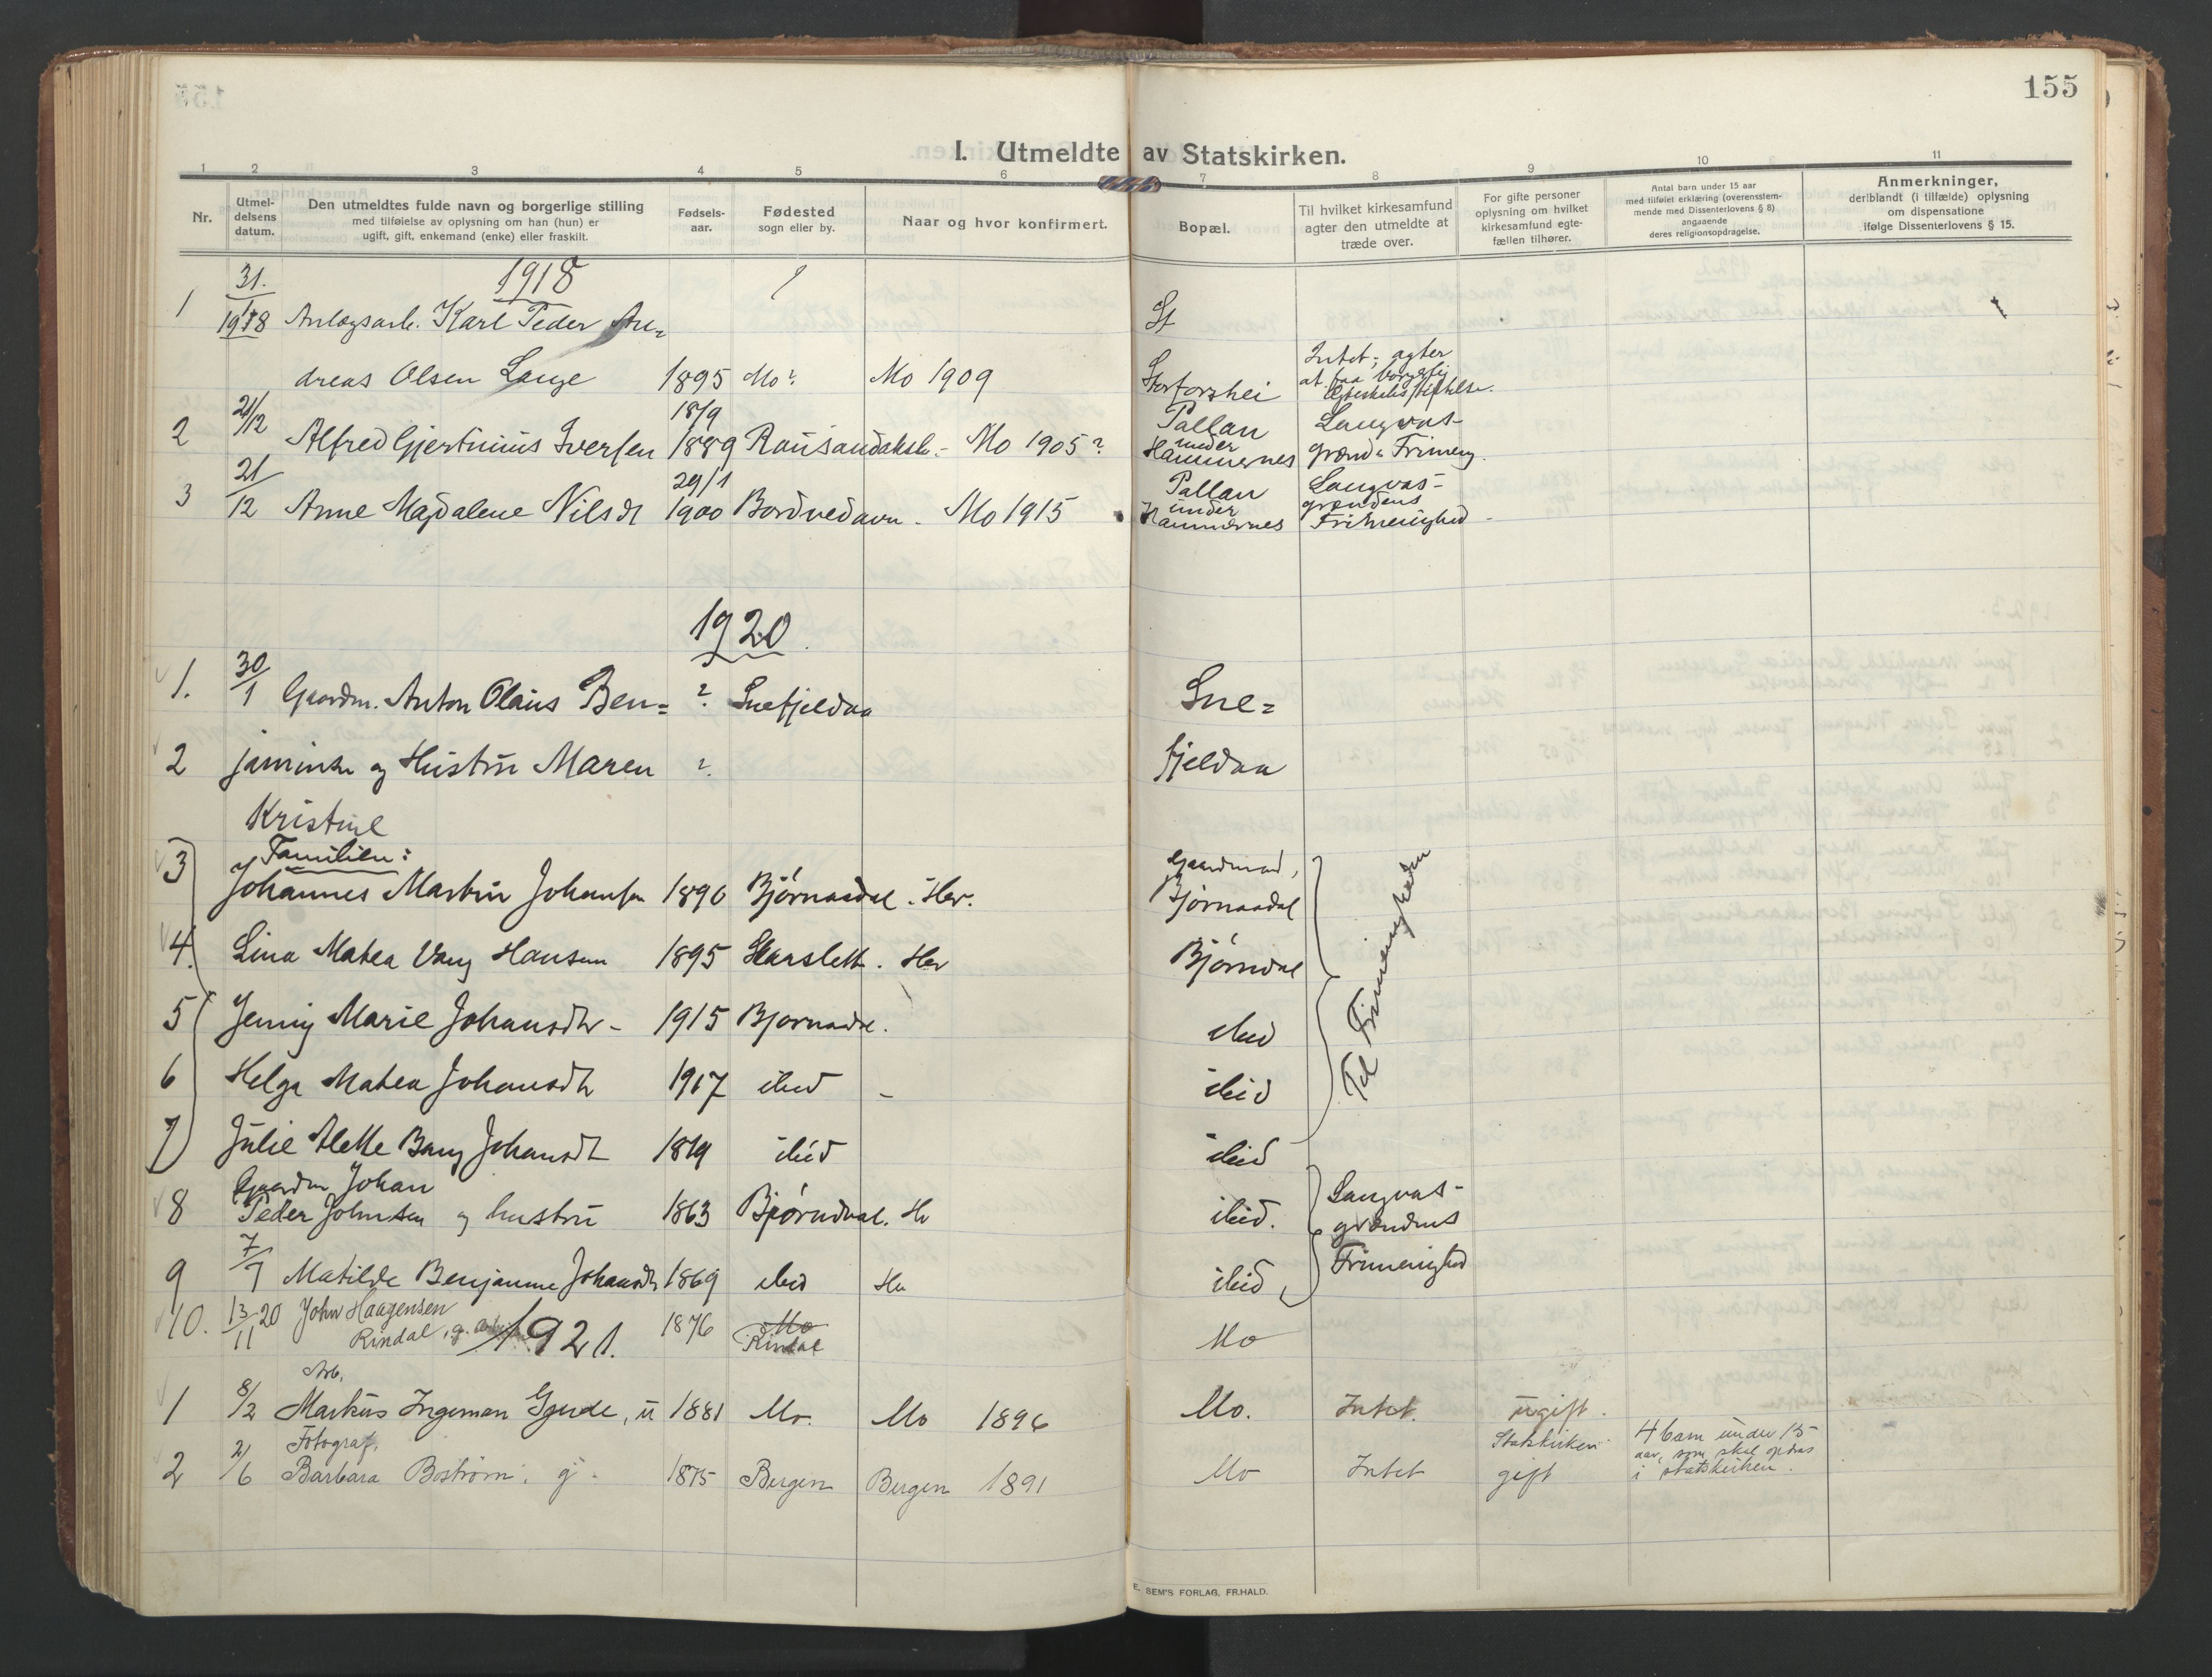 155
I. Utmeldte av Statskirken.
1 2 3 4 5 6 7 8 9 10 11
Nr.
Utmel-
delsens
datum.
Den utmeldtes fulde navn og borgerlige stilling
med tilføielse av oplysning om han (hun) er
ugift, gift, enkemand (enke) eller fraskilt.
Fødsels-
aar.
Fødested
sogn eller by.
Naar og hvor konfirmert.
Bopæl.
Til hvilket kirkesamfund
agter den utmeldte at
træde over.
For gifte personer
oplysning om hvilket
kirkesamfund egte-
fællen tilhører.
Antal barn under 15 aar
med tilføiet erklæring (overensstem-
mende med Dissenterlovens § 8)
angaaende
deres religionsopdragelse.
Anmerkninger,
deriblandt (i tilfælde) oplysning
om dispensatione
ifølge Dissenterlovens § 15.
1918
1 31. 1 1918 Anlægsarb. Karl Peder An=
dreas Olsen Lange 1895 Mo? Mo 1909 Storforshei Intet; agter
at faa borgerlig
2 21/12 Alfred Gjertinius Iversen 18/9 1889 Mo 1905? Pallan
under
Hammernes Langvas-
grænd Frimeng.
3 21/12 Anne Magdalene Nilsdt 29/1 1900 Bordvedavn. Mo 1915 Pallan
under
Hammernes Langvas-
grændens
Frimenighed
1920
1. 30/1 Gaardm. Anton Olaus Ben= ? Snefjeldaa Sne=
2 jaminsen og Hustru Maren ? fjeldaa
Kristine
Familien:
3 Johannes Martin Johansen 1890 Bjørnaadal. Her. Gaardmand,
Bjørnaadal
4. Lina Matea Vang Hansen 1895 Storslett. Her Bjørndal
Til Frimenigheden
5 Jenny Marie Johansdtr - 1915 Bjornadal. ibid
6 Helga Matea Johansdtr 1917 ibid - ibid
7 Julie Alette Bang Johansdt 1819 ibid ibid
Gaardm Johan
8 Peder Johnsen og hustru 1863 Bjørndal. Her ibid. Langvas-
grændens
9 7/7 Matilde Benjamine Johansdtr 1869 ibid Her ibid Frimenighed
10. 13/11 20 John Haagensen
Rindal, g. 1876 Mo
Rindal Mo
1921.
Arb.
1 8/2 Markus Ingeman , u 1881 Mo. Mo 1896 Mo. Intet. ugift.
Fotograf,
2 2/6 Barbara Boström, g. 1875 Bergen Bergen 1891 Mo Intet Statskirken
gift 4 barn under 15
aar, som skal opdras
i statskirken.
E. SEM'S FORLAG, FR.HALD.